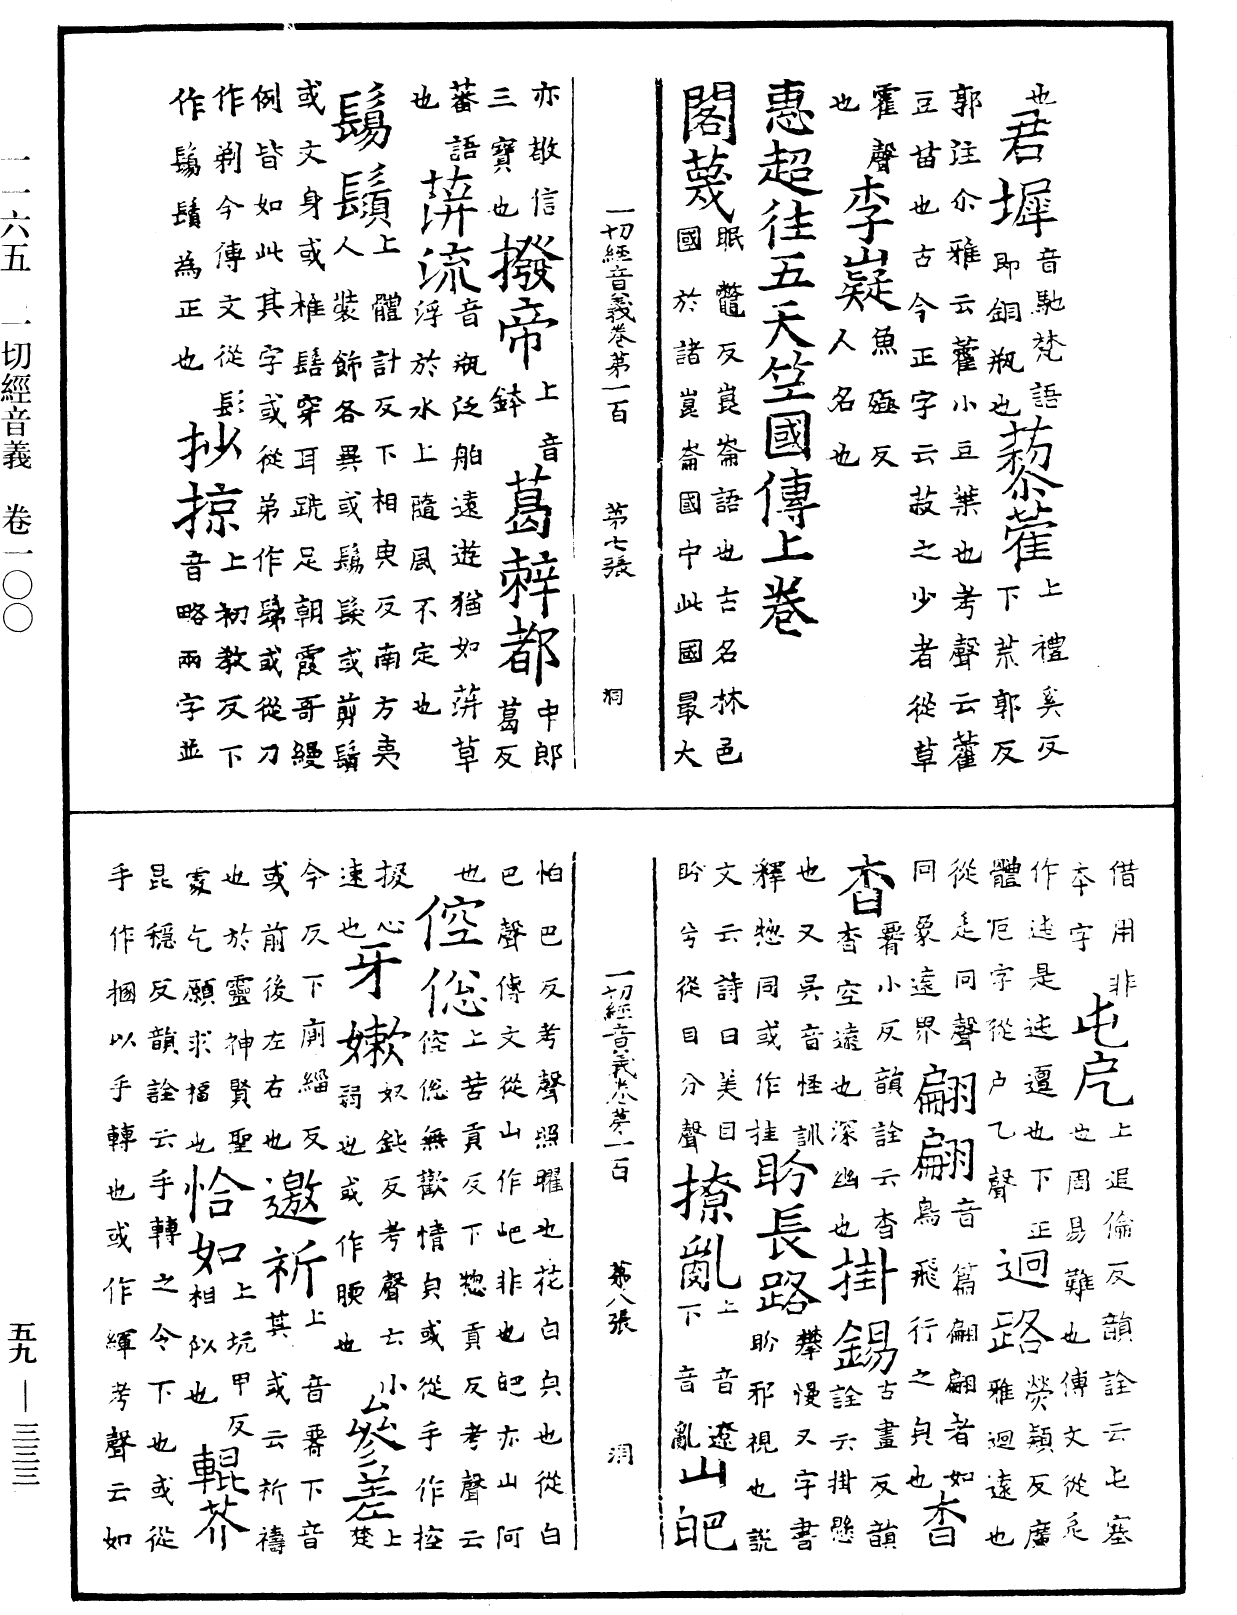 也君墀音馳梵語即銅瓶也藜藿上禮奚反下荒郭反
郭注尒雅云藿小豆葉也考聲云藿
豆苗也古今正字云菽之少者從草
霍聲也李嶷魚殛反人名也
惠超往五天竺國傳上卷
閣蔑眠鼈反崑崙語也古名林邑國於諸崑崙國中此國最大
一切經音義卷第一百 第七張 洞
亦敬信三寶也撥帝上音鉢葛辢都中郎葛反
蕃語也蓱流音瓶泛舶遠遊猶如蓱草浮於水上隨風不定也
鬄鬚上體計反下相臾反南方夷人裝飾各異或鬄髮或剪鬚
或文身或椎髻穿耳跣足朝霞哥縵
例皆如此其字或從弟作鬀或從刀
作剃今傳文從髟作鬄鬚為正也抄掠上初教反下音略兩字並
借用非本字屯戹上追倫反韻詮云屯塞也周易難也傳文從辵
作迍是迍邅也下正體戹字從戶乙聲迥路熒穎反廣雅迥遠也
從辵冋聲同象遠界翩翩音篇翩翩者如鳥飛行之皃也杳
杳䨲小反韻詮云杳杳空遠也深幽也掛錫古畫反韻詮云掛懸
也又吳音怪訓釋惣同或作挂盻長路攀慢又字書盻邪視也說
文云詩曰美目盻兮從目分聲撩亂上音遼下音亂山皅
一切經音義卷第一百 第八張 洞
怕巴反考聲照曜也花白皃也從白
巴聲傳文從山作岊非也皅亦山阿
也倥偬上苦貢反下惣貢反考聲云倥偬無歡情皃或從手作控
掇心速也牙嫰奴鈍反考聲云小弱也或作腝也參差上楚
今反下廁緇反或前後左右也邀祈上音䨲下音其或云祈禱
也於靈神賢聖處乞願求福也恰如上坑甲反相似也輥芥
昆穩反韻詮云手轉之令下也或從
手作掍以手轉也或作緷考聲云如
一一六五 一切經音義 卷一〇〇
五九—三三三